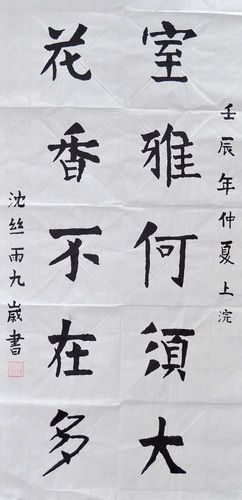 壬辰年仲夏上浣
室雅何須大
花香不在多
沈丝雨九歲書